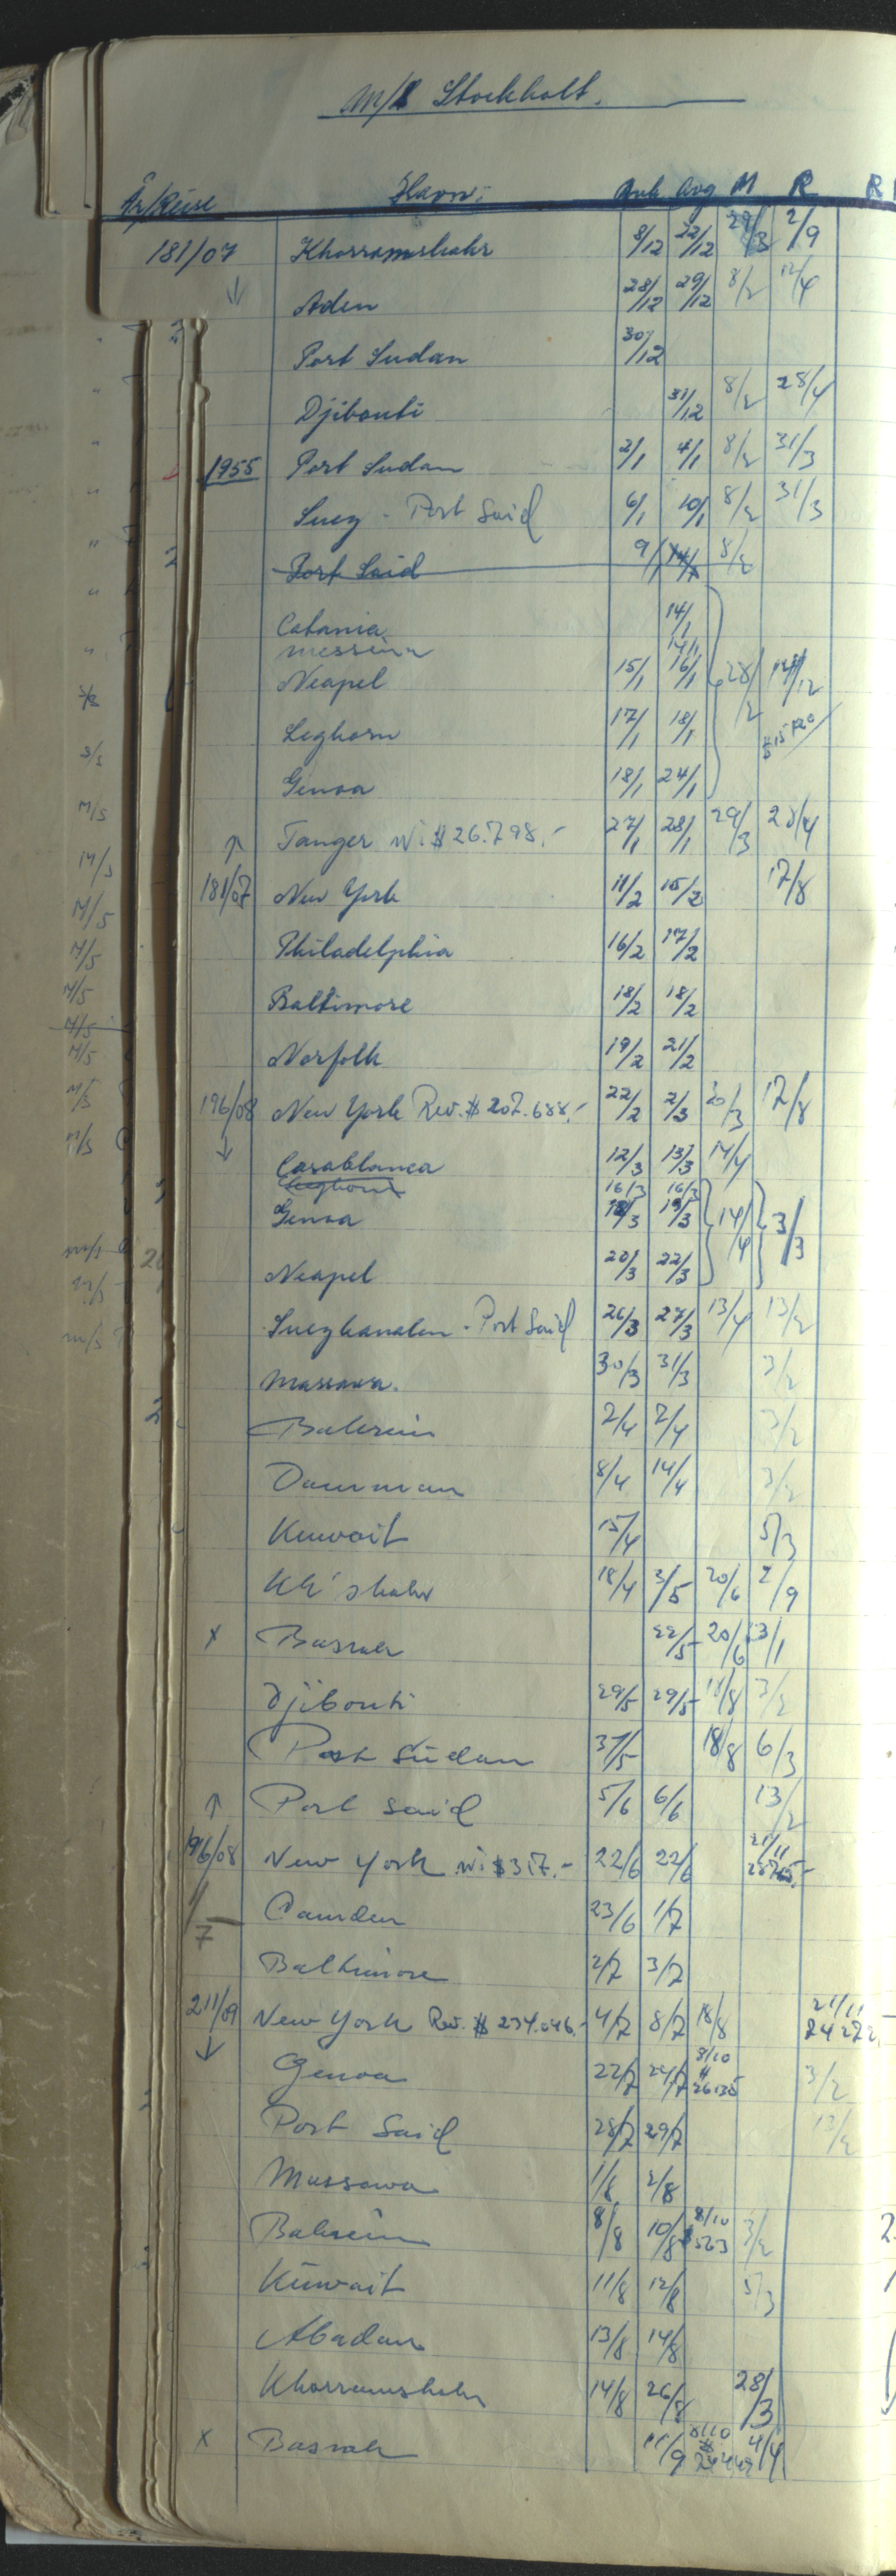 M/S Stockholt.
År/Reise Havn: Ank Avg M R R
181/07 Khorramshahr 8/12 22/12 29/3 2/9
↓ Aden 28/12 29/12 8/2 12/4
Port Sudan 30/12
Djibouti 31/12 8/2 28/4
1955 Port Sudan 2/1 4/1 8/2 31/3
Suez - Port Said 6/1 10/1 8/2 31/3
Port Said 9/1 8/2
Catania 14/1
Messina 14/1
Neapel 15/1 16/1 28/2
Leghorn 17/1 18/1
Genoa 18/1 24/1
↑ Tanger Wi $ 26.798.- 27/1 28/1 29/3 28/4
181/07 New York 11/2 15/2 17/8
Philadelphia 16/2 17/2
Baltimore 18/2 18/2
Norfolk 19/2 21/2
196/08 New York Rev. $ 207.688.- 22/2 2/3 20/3 17/8
↓ Casablanca 12/3 13/3 14/4
Leghorn 16/3 16/3
Genoa 18/3 19/3 14/4 3/3
Neapel 20/3 22/3
Suezkanalen - Port Said 26/3 27/3 13/4 13/2
Massawa. 30/3 31/3 3/2
Bahrein 2/4 2/4 3/2
Damman 8/4 14/4 3/2
Kuwait 15/4 5/3
Kh'shahr 18/4 3/5 20/6 2/9
x Basrah 22/5 20/6 13/1
Djibouti 29/5 29/5 18/8 3/2
Port Sudan 31/5 18/8 6/3
↑ Port Said 5/6 6/6 13/2
196/08 New York Wi $ 317.- 22/6 22/6 21/11
1/7 Camden 23/6 1/7
Baltimore 2/7 3/7
211/09 New York Rev. $ 234.046.- 4/7 8/7 18/8 21/11
↓ Genoa 22/7 24/7 8/10 $ 26135 3/2
Port Said 28/7 29/7 13/2
Massawa 1/8 2/8
Bahrein 8/8 10/8 8/10 $ 563 3/2
Kuwait 11/8 12/8 5/3
Abadan 13/8 14/8
Khorramshahr 14/8 26/8 28/3
x Basrah 11/9 8/10 $ 24449 4/4